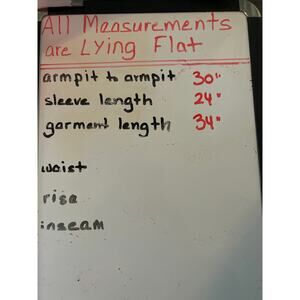 All Measurements
are Lying Flat
armpit to armpit 30"
sleeve length 24"
garment length 34"
waist
rise
inseam